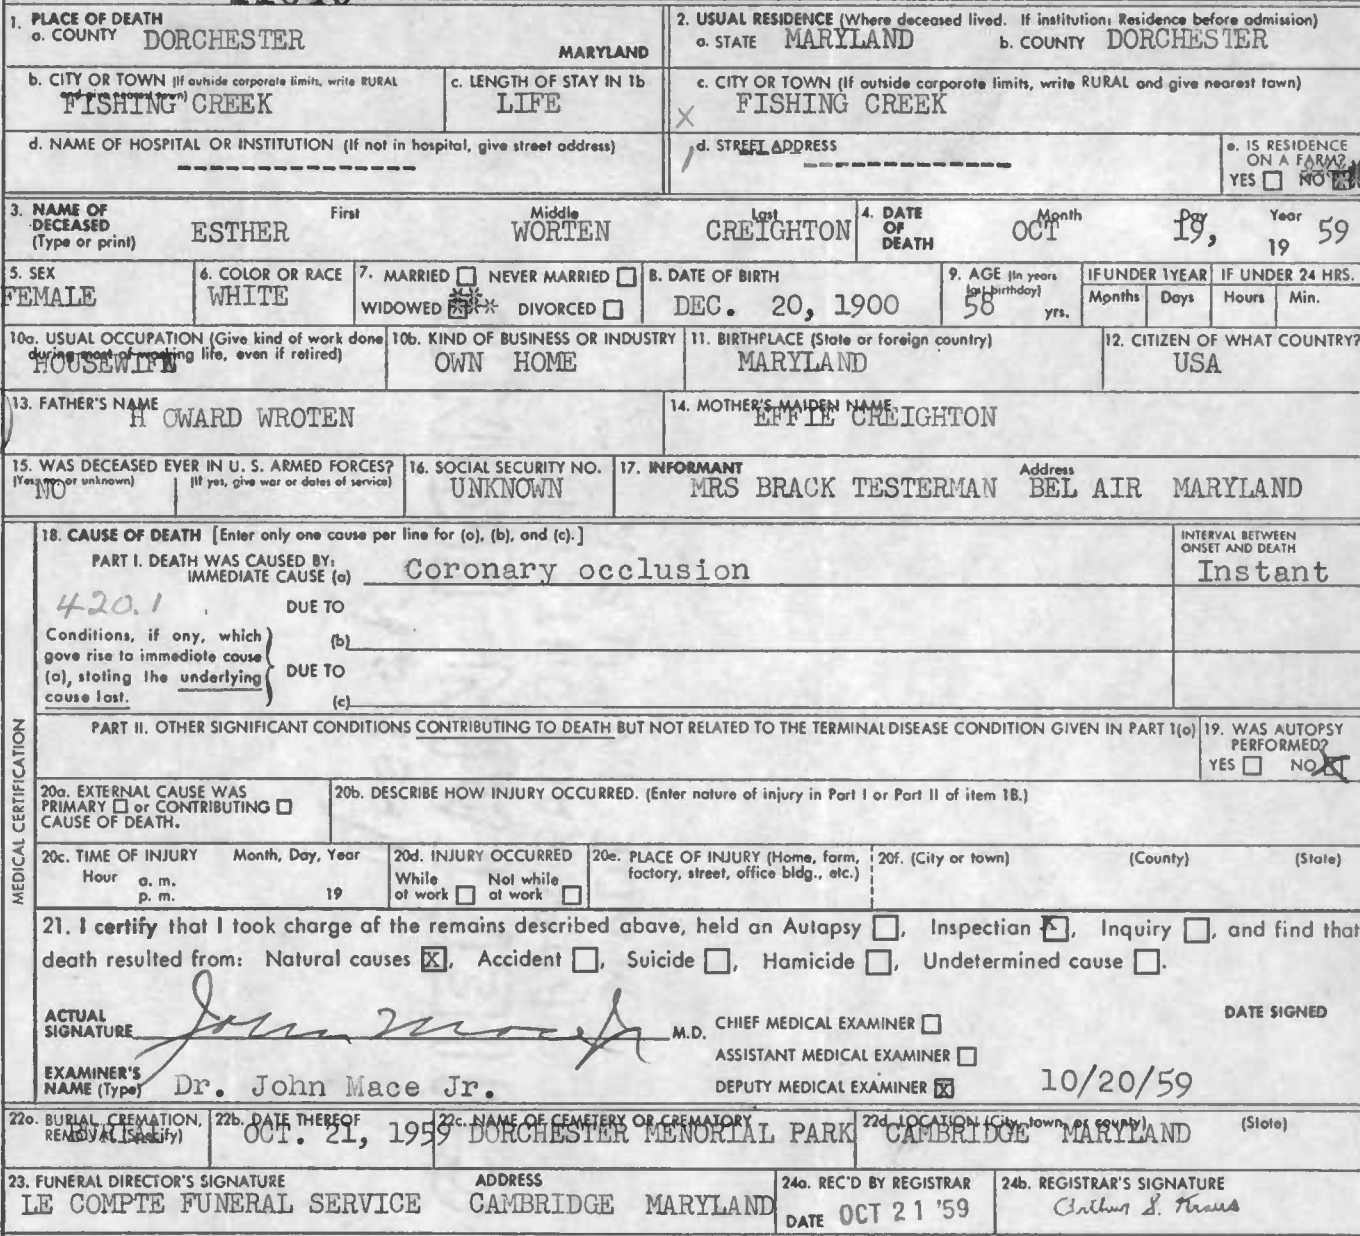 1. PLACE OF DEATH
a. COUNTY DORCHESTER MARYLAND
2. USUAL RESIDENCE (Where deceased lived. If institution: Residence before admission)
a. STATE MARYLAND b. COUNTY DORCHESTER
b. CITY OR TOWN (If outside corporate limits, write RURAL and give nearest town)
FISHING CREEK
c. LENGTH OF STAY IN 1b
LIFE
c. CITY OR TOWN (If outside corporate limits, write RURAL and give nearest town)
FISHING CREEK
X
d. NAME OF HOSPITAL OR INSTITUTION (If not in hospital, give street address)
d. STREET ADDRESS
e. IS RESIDENCE
ON A FARM?
YES NO
3. NAME OF
DECEASED
(Type or print)
First Middle Last
ESTHER WORTEN CREIGHTON
4. DATE
OF
DEATH
Month Day Year
OCT 19, 19 59
5. SEX
FEMALE
6. COLOR OR RACE
WHITE
7. MARRIED NEVER MARRIED
WIDOWED DIVORCED
8. DATE OF BIRTH
DEC. 20, 1900
9. AGE (In years
last birthday)
58 yrs.
IF UNDER 1 YEAR
Months Days
IF UNDER 24 HRS.
Hours Min.
10a. USUAL OCCUPATION (Give kind of work done
during most of working life, even if retired)
HOUSEWIFE
10b. KIND OF BUSINESS OR INDUSTRY
OWN HOME
11. BIRTHPLACE (State or foreign country)
MARYLAND
12. CITIZEN OF WHAT COUNTRY?
USA
13. FATHER'S NAME
H OWARD WROTEN
14. MOTHER'S MAIDEN NAME
EFFIE CREIGHTON
15. WAS DECEASED EVER IN U. S. ARMED FORCES?
(Yes, no, or unknown) (If yes, give war or dates of service)
NO
16. SOCIAL SECURITY NO.
UNKNOWN
17. INFORMANT Address
MRS BRACK TESTERMAN BEL AIR MARYLAND
MEDICAL CERTIFICATION
18. CAUSE OF DEATH [Enter only one cause per line for (a), (b), and (c).]
PART I. DEATH WAS CAUSED BY:
IMMEDIATE CAUSE (a) Coronary occlusion
INTERVAL BETWEEN
ONSET AND DEATH
Instant
420.1
DUE TO
Conditions, if any, which
gave rise to immediate cause
(a), stating the underlying
cause last.
(b)
DUE TO
(c)
PART II. OTHER SIGNIFICANT CONDITIONS CONTRIBUTING TO DEATH BUT NOT RELATED TO THE TERMINAL DISEASE CONDITION GIVEN IN PART 1(a)
19. WAS AUTOPSY
PERFORMED?
YES NO X
20a. EXTERNAL CAUSE WAS
PRIMARY or CONTRIBUTING
CAUSE OF DEATH.
20b. DESCRIBE HOW INJURY OCCURRED. (Enter nature of injury in Part I or Part II of item 18.)
20c. TIME OF INJURY Month, Day, Year
Hour a. m.
p. m. 19
20d. INJURY OCCURRED
While Not while
at work at work
20e. PLACE OF INJURY (Home, farm,
factory, street, office bldg., etc.)
20f. (City or town) (County) (State)
21. I certify that I took charge of the remains described above, held an Autopsy , Inspection X, Inquiry , and find that
death resulted from: Natural causes X, Accident , Suicide , Homicide , Undetermined cause .
ACTUAL
SIGNATURE John Mace Jr M.D.
EXAMINER'S
NAME (Type) Dr. John Mace Jr.
CHIEF MEDICAL EXAMINER
ASSISTANT MEDICAL EXAMINER
DEPUTY MEDICAL EXAMINER X
DATE SIGNED
10/20/59
22a. BURIAL, CREMATION,
REMOVAL (Specify)
BURIAL
22b. DATE THEREOF
OCT. 21, 1959
22c. NAME OF CEMETERY OR CREMATORY
DORCHESTER MENORIAL PARK
22d. LOCATION (City, town, or county) (State)
CAMBRIDGE MARYLAND
23. FUNERAL DIRECTOR'S SIGNATURE ADDRESS
LE COMPTE FUNERAL SERVICE CAMBRIDGE MARYLAND
24a. REC'D BY REGISTRAR
DATE OCT 21 '59
24b. REGISTRAR'S SIGNATURE
Arthur S. Kraus